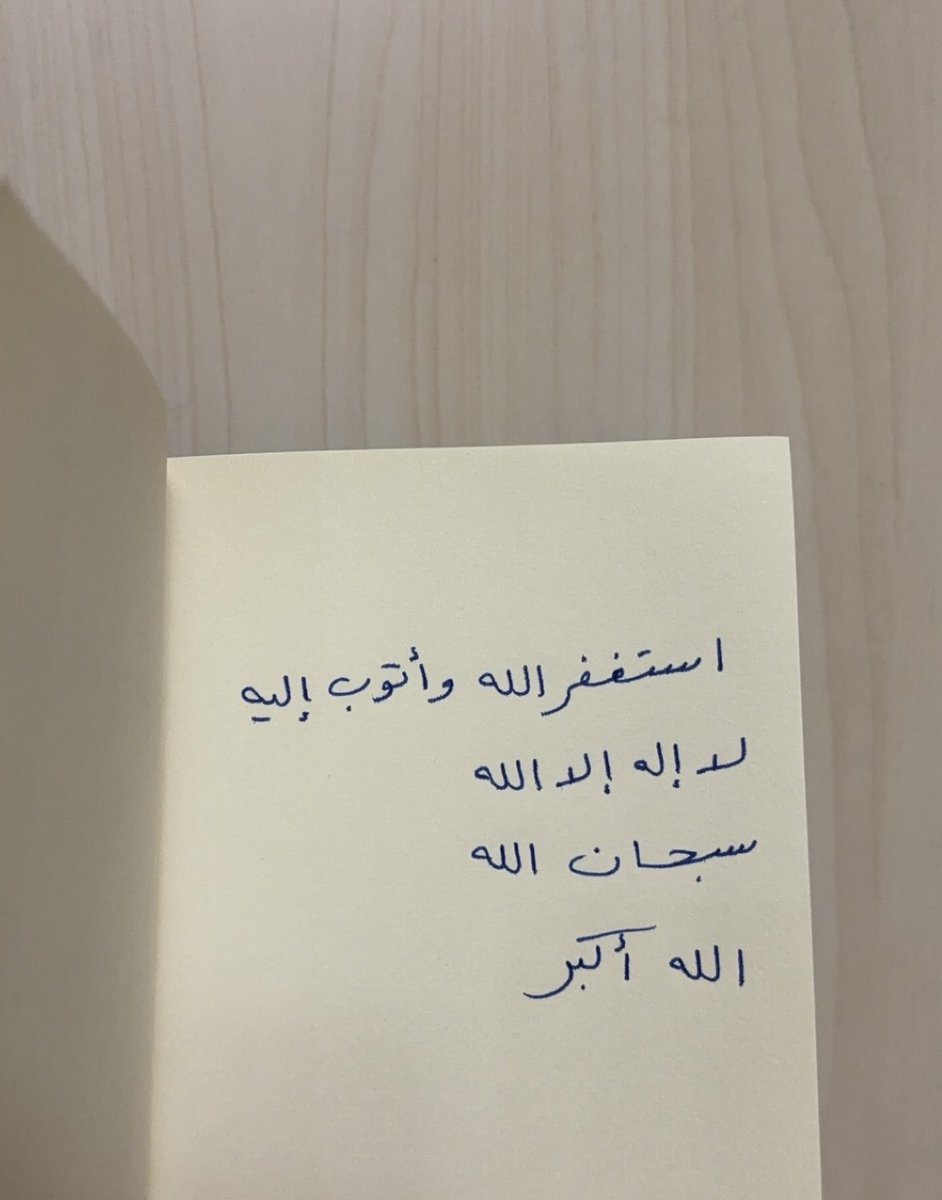 استغفر الله وأتوب إليه
لا إله إلا الله
سبحان الله
الله أكبر